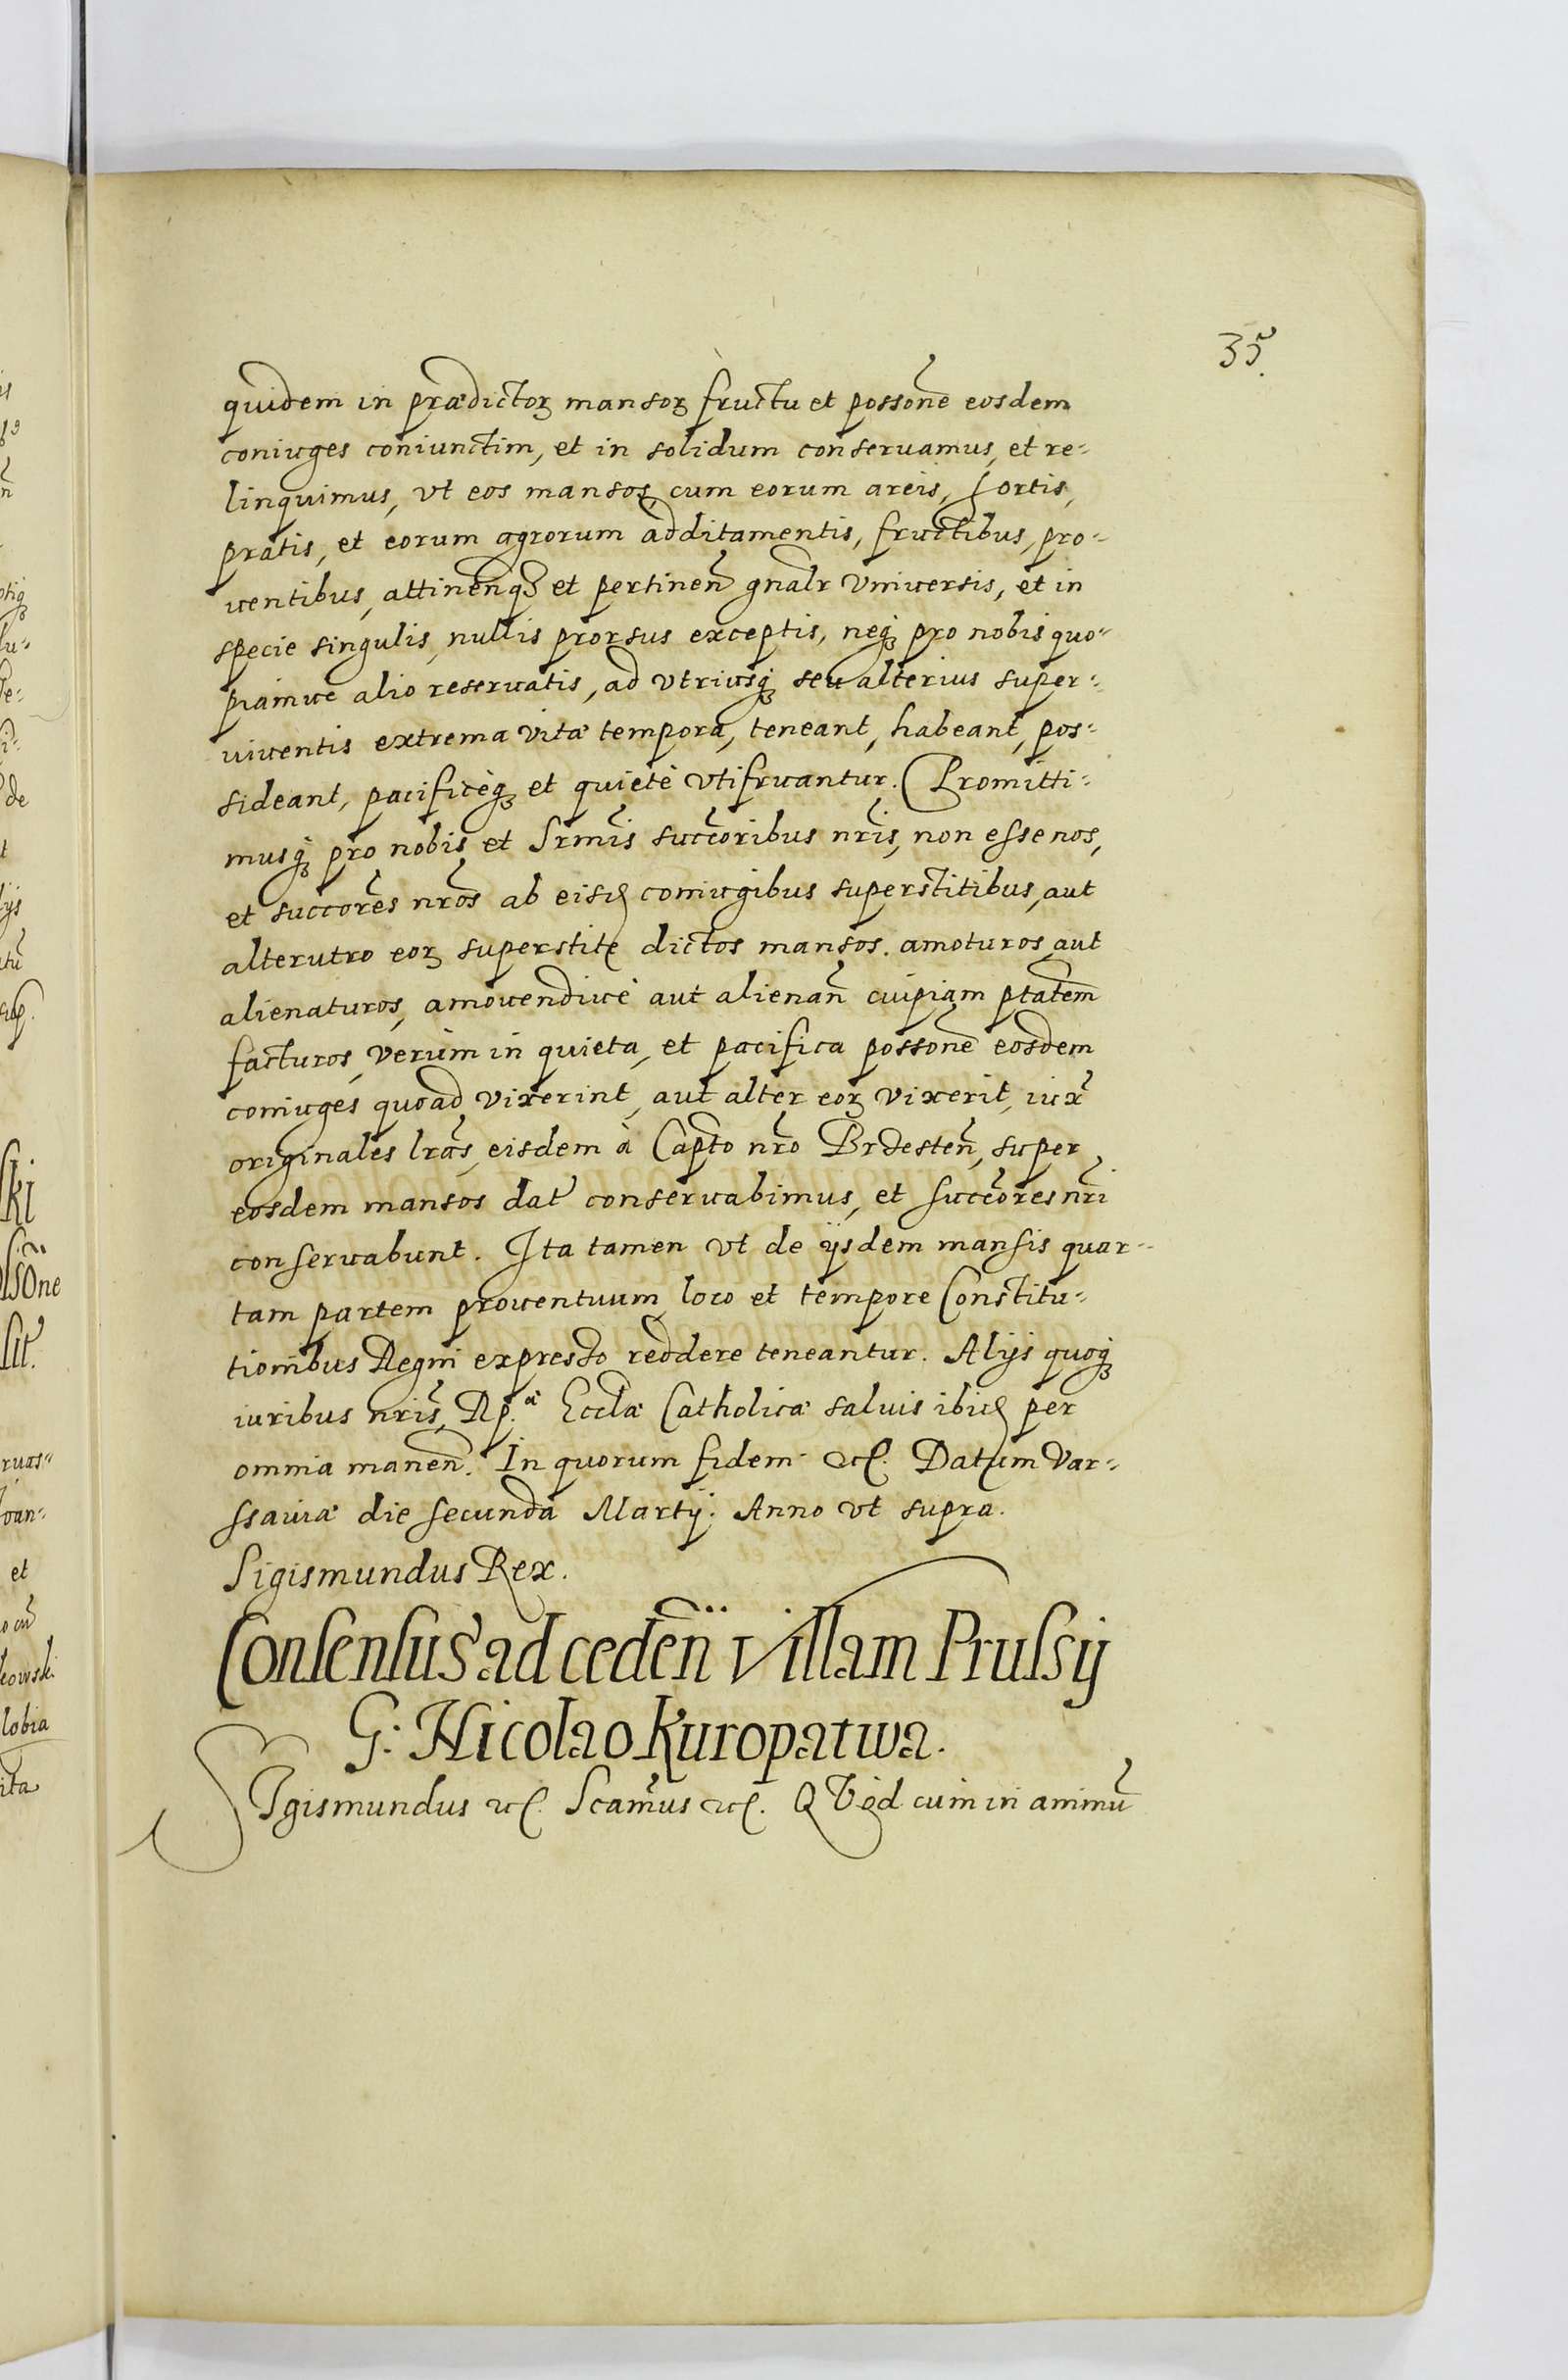 35.
quidem in prædictoꝝ mansoꝝ fructu et possone̅ eosdem
coniuges coniunctim, et in solidum conseruamus, et re-
linquimus, vt eos mansos, cum eorum areis, hortis,
pratis, et eorum agrorum additamentis, fructibus, pro-
uentibus, attinen̅qꝫ et pertinen̅ gn̅alr vniuersis, et in
specie singulis, nullis prorsus exceptis, neqꝫ pro nobis quo-
piamue alio reseruatis, ad vtriusqꝫ seu alterius super-
uiuentis extrema vitæ tempora, teneant, habeant, pos-
sideant, pacificèqꝫ et quietè vtifruantur. Promitti-
musqꝫ pro nobis et Srm̅is succe̅oribus nr̅is, non esse nos,
et succore̅s nr̅os ab eisd coniugibus superstitibus, aut
alterutro eoꝝ superstite dictos mansos amoturos, aut
alienaturos, amouendiue aut alienan̅ cuipiam pta̅tem
facturos, verùm in quieta, et pacifica possone̅ eosdem
coniuges quoad vixerint, aut alter eoꝝ vixerit, iux̅
originales lr̅as, eisdem à Capto nr̅o Brdesten̅, super
eosdem mansos dat̅ conseruabimus, et succe̅ores nr̅i
conseruabunt. Ita tamen vt de ijsdem mansis quar-
tam partem prouentuum, loco et tempore Constitu-
tionibus Regni expresso reddere teneantur. Alijs quoqꝫ
iuribus nr̅is, Rp.æ Eccl̅æ Catholicæ saluis ibid per
omnia manen̅. In quorum fidem etc. Datum Var-
ssauiæ die secunda Martij. Anno vt supra.
Sigismundus Rex.
Consensus ad ceden̅ villam Prussij
G: Nicolao Kuropatwa.
SIgismundus etc. Scam̅us etc. QVod cum in animu̅